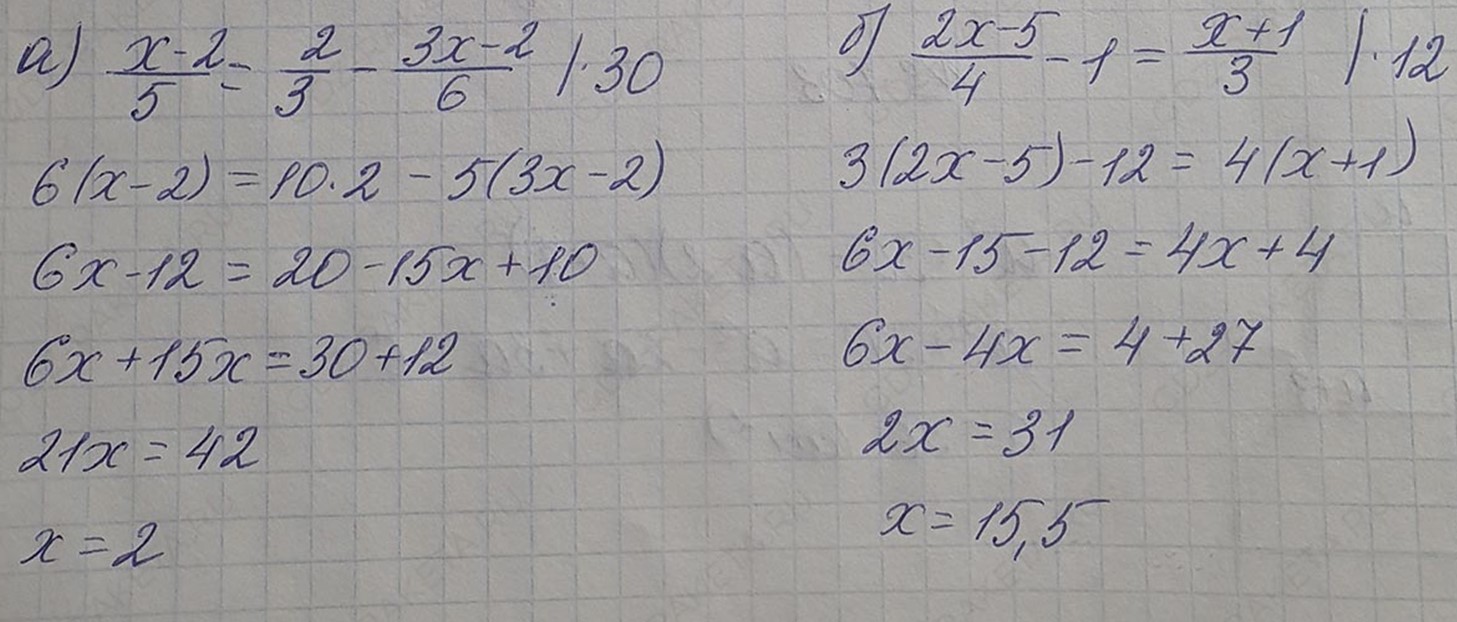 а) (x-2)/5 = 2/3 - (3x-2)/6 |·30
6(x-2) = 10·2 - 5(3x-2)
6x-12 = 20-15x+10
6x+15x = 30+12
21x = 42
x = 2
б) (2x-5)/4 - 1 = (x+1)/3 |·12
3(2x-5)-12 = 4(x+1)
6x-15-12 = 4x+4
6x-4x = 4+27
2x = 31
x = 15,5